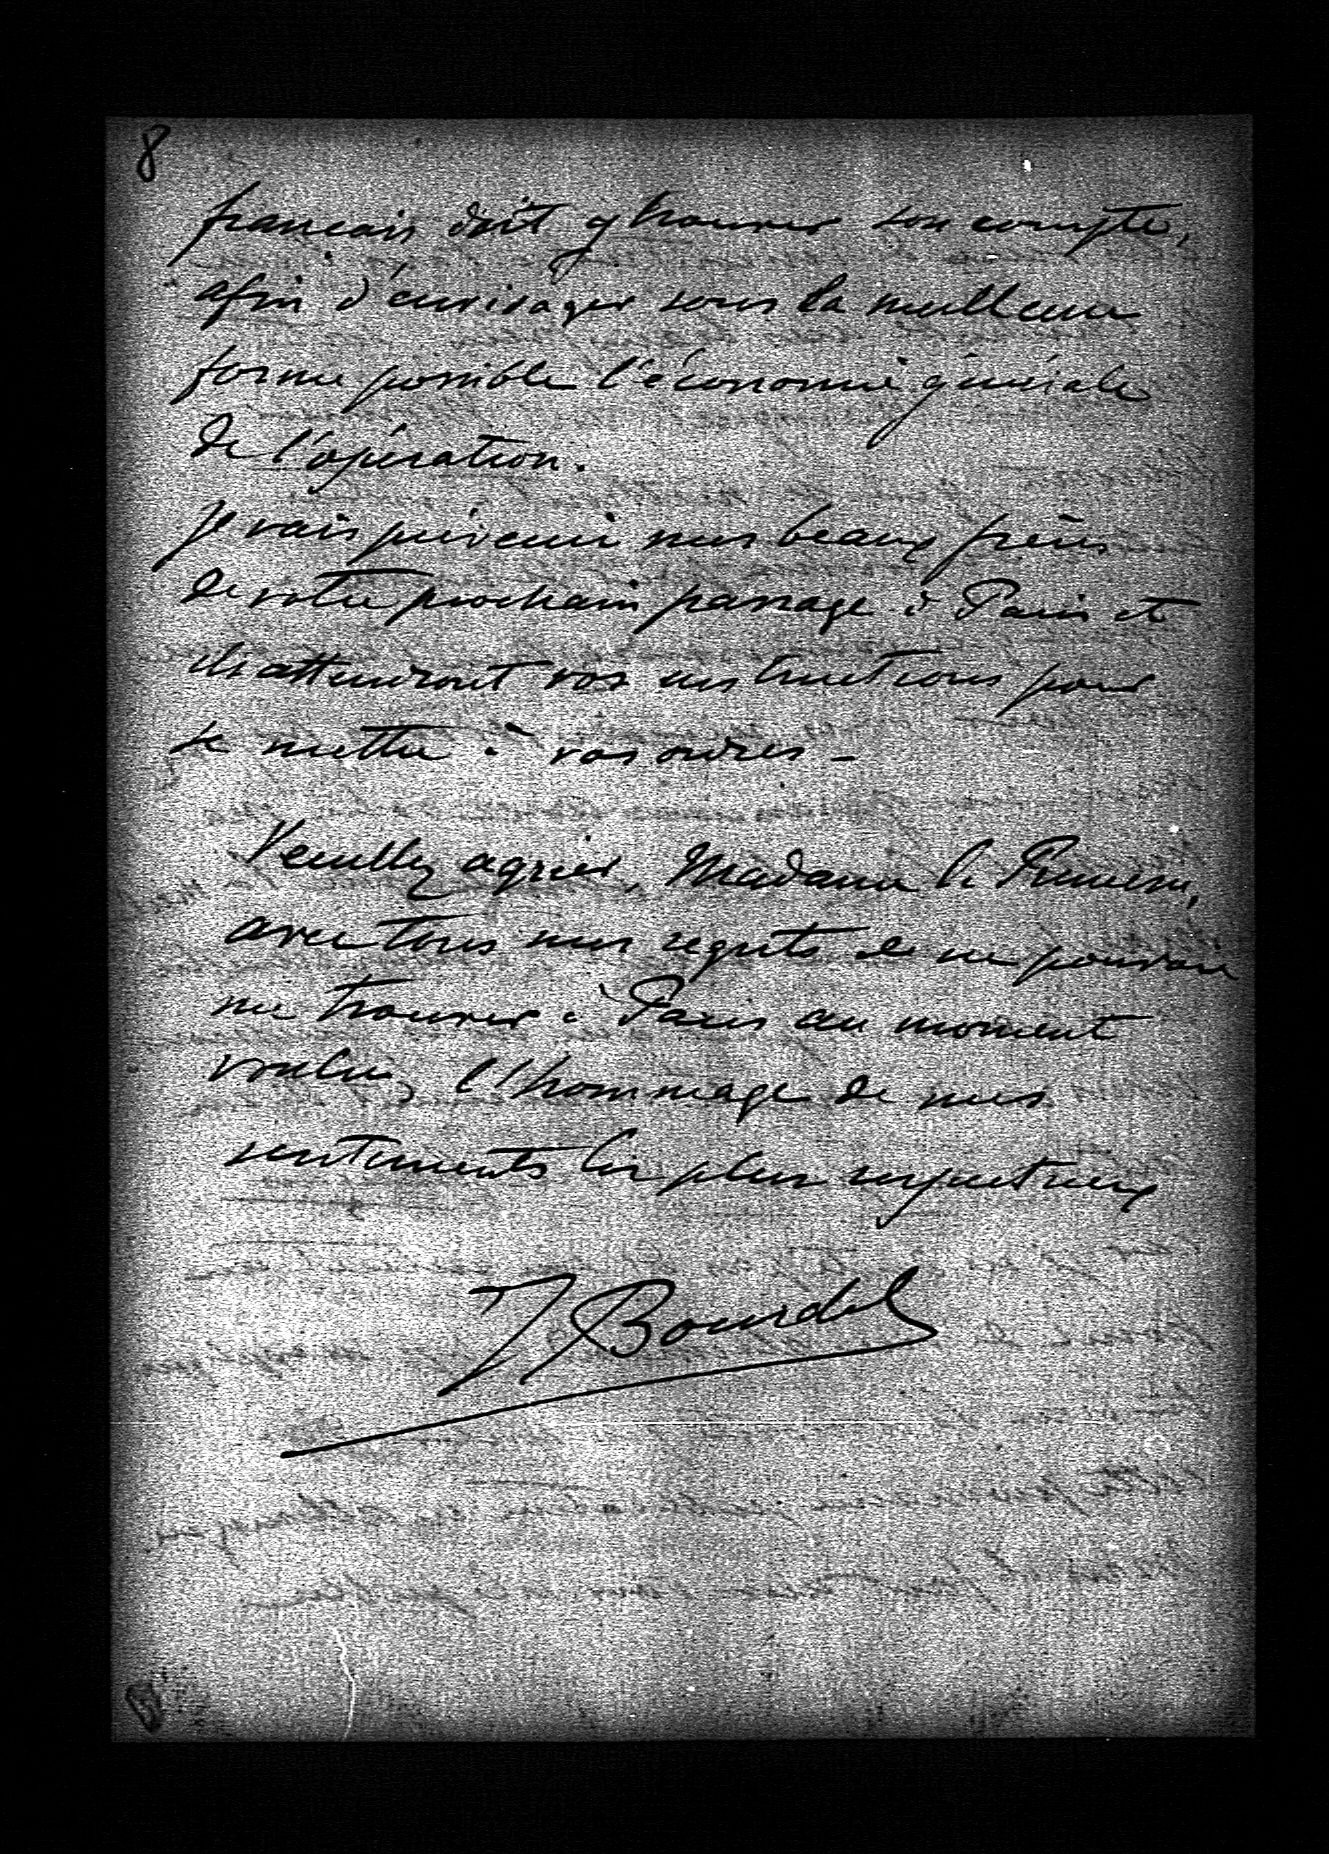 8
français doit y trouver son compte,
afin d'envisager sous la meilleure
forme possible l'économie générale
de l'opération.
Je vais prévenir mes beaux frères
de votre prochain passage à Paris et
ils attendront vos instructions pour
se mettre à vos ordres -
Veuillez agréer, Madame la
avec tous mes regrets de ne pouvoir
me trouver à Paris au moment
voulu, l'hommage de mes
sentiments les plus respectueux
J Bourdel